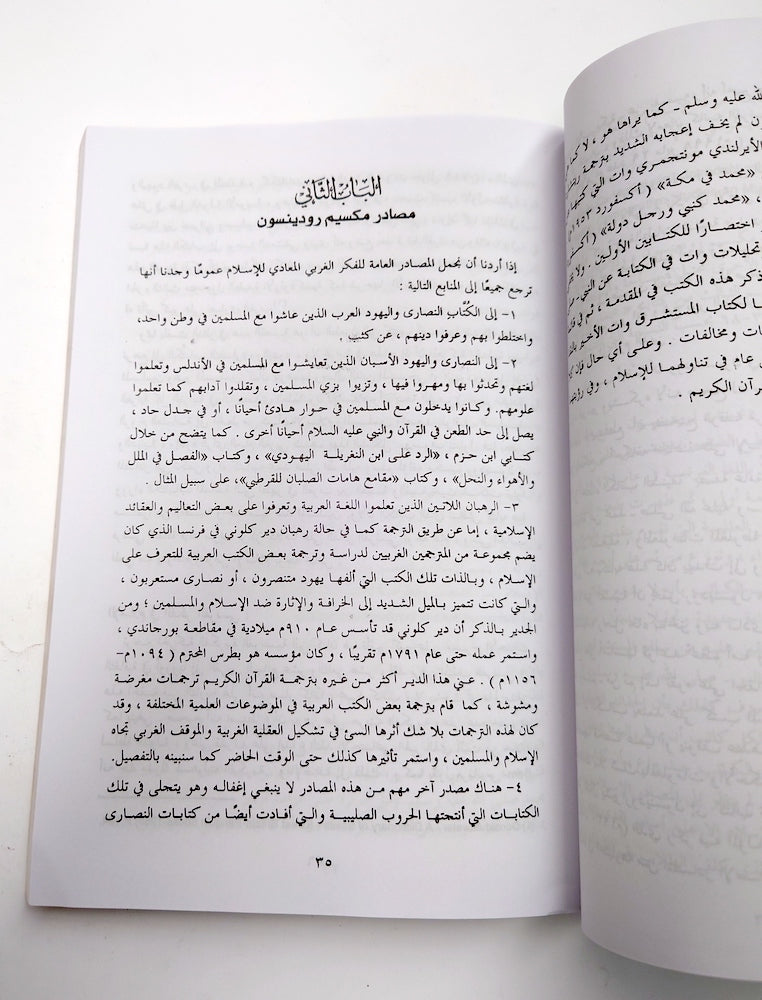 الباب الثاني
مصادر مكسيم رودينسون
إذا أردنا أن نجمل المصادر العامة للفكر الغربي المعادي للإسلام عمومًا وجدنا أنها
ترجع جميعًا إلى المنابع التالية :
١- إلى الكُتَّاب النصارى واليهود العرب الذين عاشوا مع المسلمين في وطن واحد،
واختلطوا بهم وعرفوا دينهم ، عن كثب .
٢- إلى النصارى واليهود الأسبان الذين تعايشوا مع المسلمين في الأندلس وتعلموا
لغتهم وتحدثوا بها ومهروا فيها ، وتزيوا بزي المسلمين ، وتقلدوا آدابهم كما تعلموا
علومهم. وكانوا يدخلون مع المسلمين في حوار هادئ أحيانًا ، أو في جدل حاد ،
يصل إلى حد الطعن في القرآن والنبي عليه السلام أحيانًا أخرى . كما يتضح من خلال
كتابي ابن حزم ، «الرد على ابن النغريلة اليهودي»، وكتاب «الفصل في الملل
والأهواء والنحل»، وكتاب «مقامع هامات الصلبان للقرطبي»، على سبيل المثال .
٣- الرهبان اللاتين الذين تعلموا اللغة العربية وتعرفوا على بعض التعاليم والعقائد
الإسلامية ، إما عن طريق الترجمة كما في حالة رهبان دير كلوني في فرنسا الذي كان
يضم مجموعة من المترجمين الغربيين لدراسة وترجمة بعض الكتب العربية للتعرف على
الإسلام ، وبالذات تلك الكتب التي ألفها يهود متنصرون ، أو نصارى مستعربون ،
والتي كانت تتميز بالميل الشديد إلى الخرافة والإثارة ضد الإسلام والمسلمين ؛ ومن
الجدير بالذكر أن دير كلوني قد تأسس عام ٩١٠م ميلادية في مقاطعة بورجاندي ،
واستمر عمله حتى عام ١٧٩١م تقريبًا ، وكان مؤسسه هو بطرس المحترم ( ١٠٩٤م-
١١٥٦م ) . عني هذا الدير أكثر من غيره بترجمة القرآن الكريم ترجمات مغرضة
ومشوشة ، كما قام بترجمة بعض الكتب العربية في الموضوعات العلمية المختلفة ، وقد
كان لهذه الترجمات بلا شك أثرها السئ في تشكيل العقلية الغربية والموقف الغربي تجاه
الإسلام والمسلمين ، واستمر تأثيرها كذلك حتى الوقت الحاضر كما سنبينه بالتفصيل.
٤- هناك مصدر آخر مهم من هذه المصادر لا ينبغي إغفاله وهو يتجلى في تلك
الكتابات التي أنتجتها الحروب الصليبية والتي أفادت أيضًا من كتابات النصارى
٣٥
الله عليه وسلم - كما يراها هو ، لا كما
ون لم يخف إعجابه الشديد بترجمة
الأيرلندي مونتجمري وات التي كتبها
«محمد في مكة» ( أكسفورد ١٩٥٣م
، «محمد كنبي ورجل دولة» (
اختصارًا للكتابين الأولين .
تحليلات وات في الكتابة عن النبي
ذكر هذه الكتب في المقدمة ، ثم في
ا لكتاب المستشرق وات الأخير
ات ومخالفات . وعلى أي حال فإن
عام في تناولهما للإسلام ، وفي
رآن الكريم .